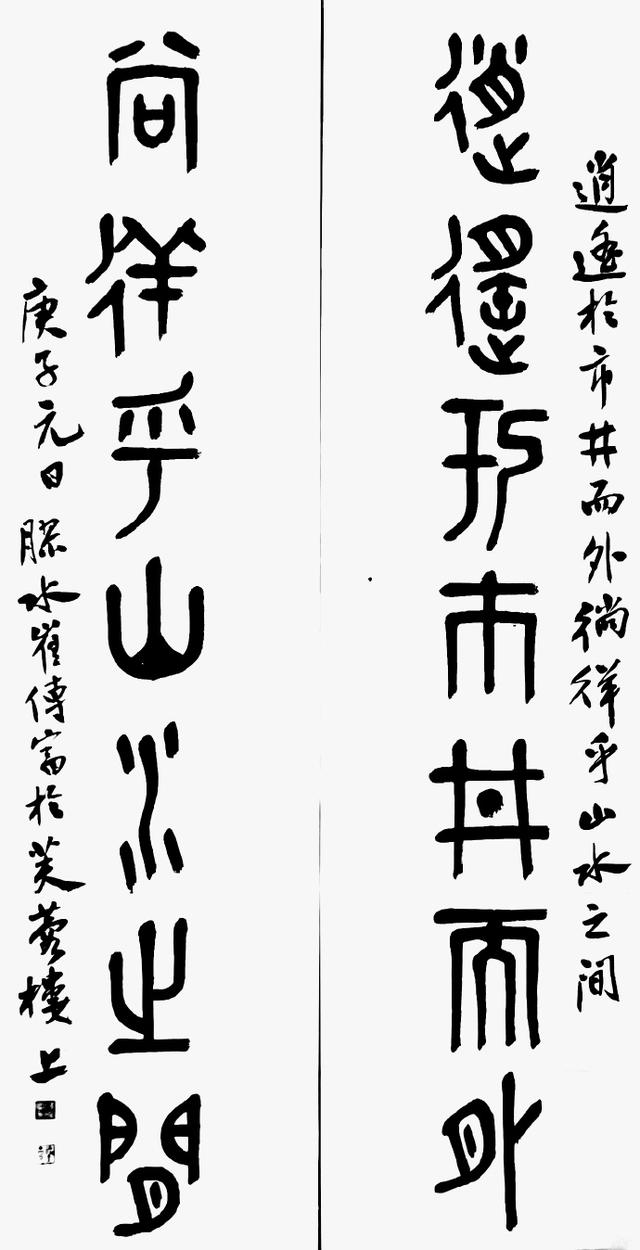 逍遙於市井而外徜徉乎山水之間
逍遙於市井而外
尚徉乎山水之間
庚子元日膠水崔傳富於芙蓉樓上